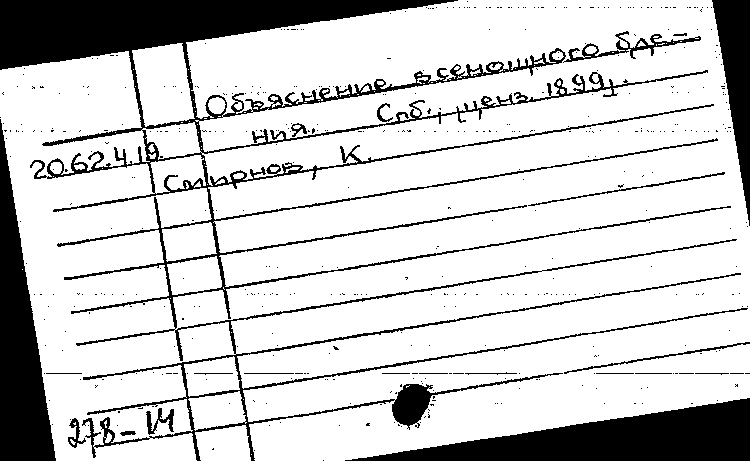 Объяснение всенощного бде-
ния. Спб., [ценз. 1899].
20.62.4.19
Смирнов, К.
278-14